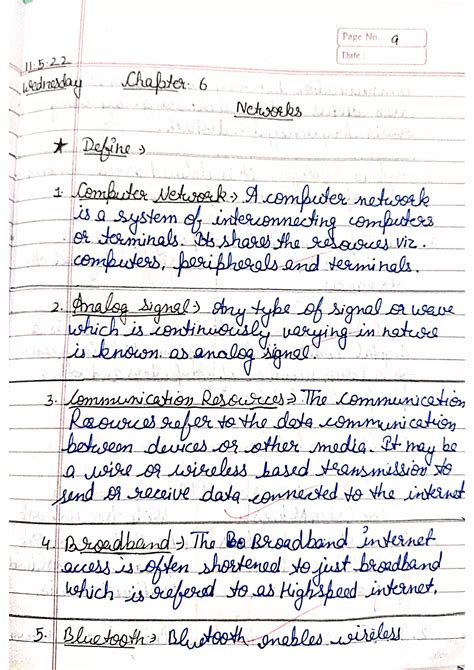 Page No. 9
Date :
11.5.22
Wednesday
Chapter 6
Networks
★ Define →
1. Computer Network → A computer network
is a system of interconnecting computers
or terminals. Its shares the resources viz.
computers, peripherals and terminals.
2. Analog signal → Any type of signal or wave
which is continuously varying in nature
is known as analog signal.
3. Communication Resources → The communication
Resources refer to the data communication
between devices or other media. It may be
a wire or wireless based transmission to
send or receive data connected to the internet
4. Broadband → The Broadband internet
access is often shortened to just broadband
which is refered to as Highspeed internet.
5. Bluetooth → Bluetooth enables wireless